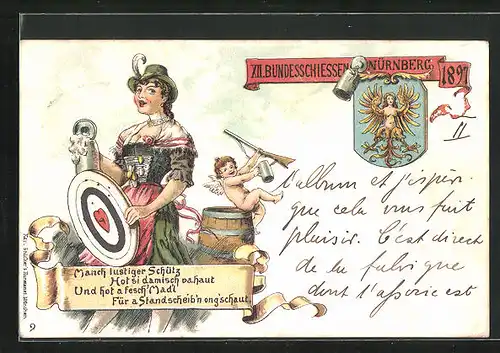 XII. BUNDESSCHIESSEN NÜRNBERG.
1897
II
l'album et j'espèr-
que cela vous fait
plaisir. C'est direct
de la fabrique
dont l'associé est
Manch lustiger Schütz
Hot si damisch vahaut
Und hot a fesch' Madl
Für a Standscheib'n ong'schaut.
9